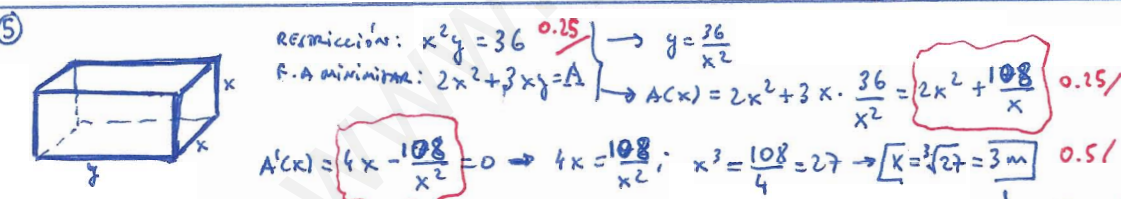 5
RESTRICCIÓN: x²y = 36 0.25 → y = 36/x²
F. A MINIMIZAR: 2x² + 3xy = A → A(x) = 2x² + 3x · 36/x² = 2x² + 108/x 0.25/
x
x
y
A'(x) = 4x - 108/x² = 0 → 4x = 108/x² ; x³ = 108/4 = 27 → x = ∛27 = 3 m 0.5/